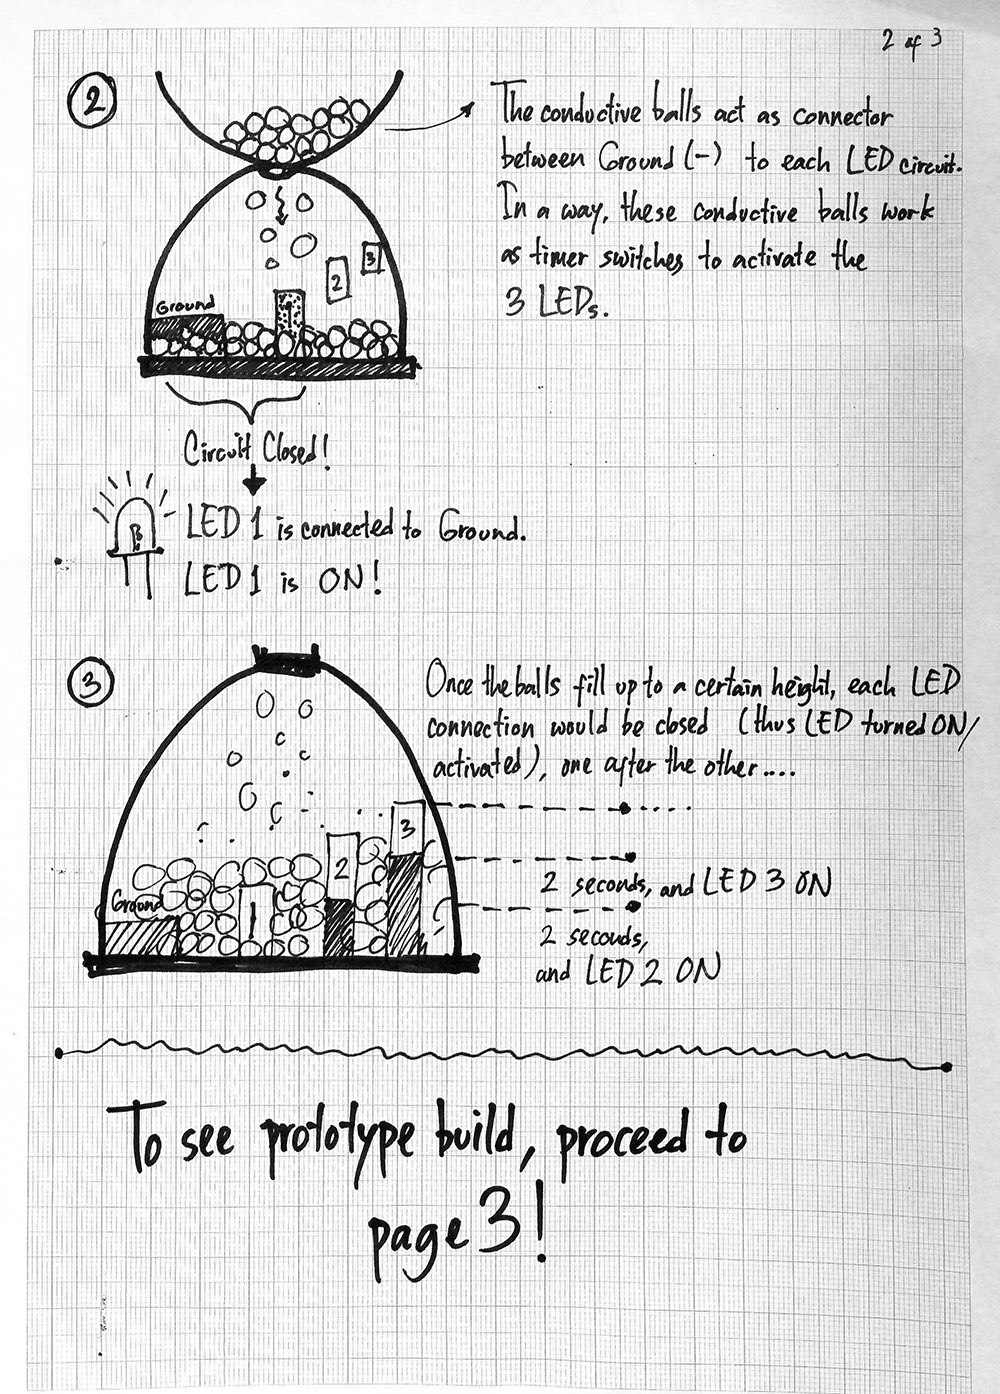 2 of 3
2
The conductive balls act as connector
between Ground (-) to each LED circuit.
In a way, these conductive balls work
as timer switches to activate the
3 LEDs.
3
2
Ground
1
Circuit Closed!
LED 1 is connected to Ground.
LED 1 is ON!
3
Once the balls fill up to a certain height, each LED
connection would be closed (thus LED turned ON/
activated), one after the other....
3
2
Ground
1
2 seconds, and LED 3 ON
2 seconds,
and LED 2 ON
To see prototype build, proceed to
page 3!